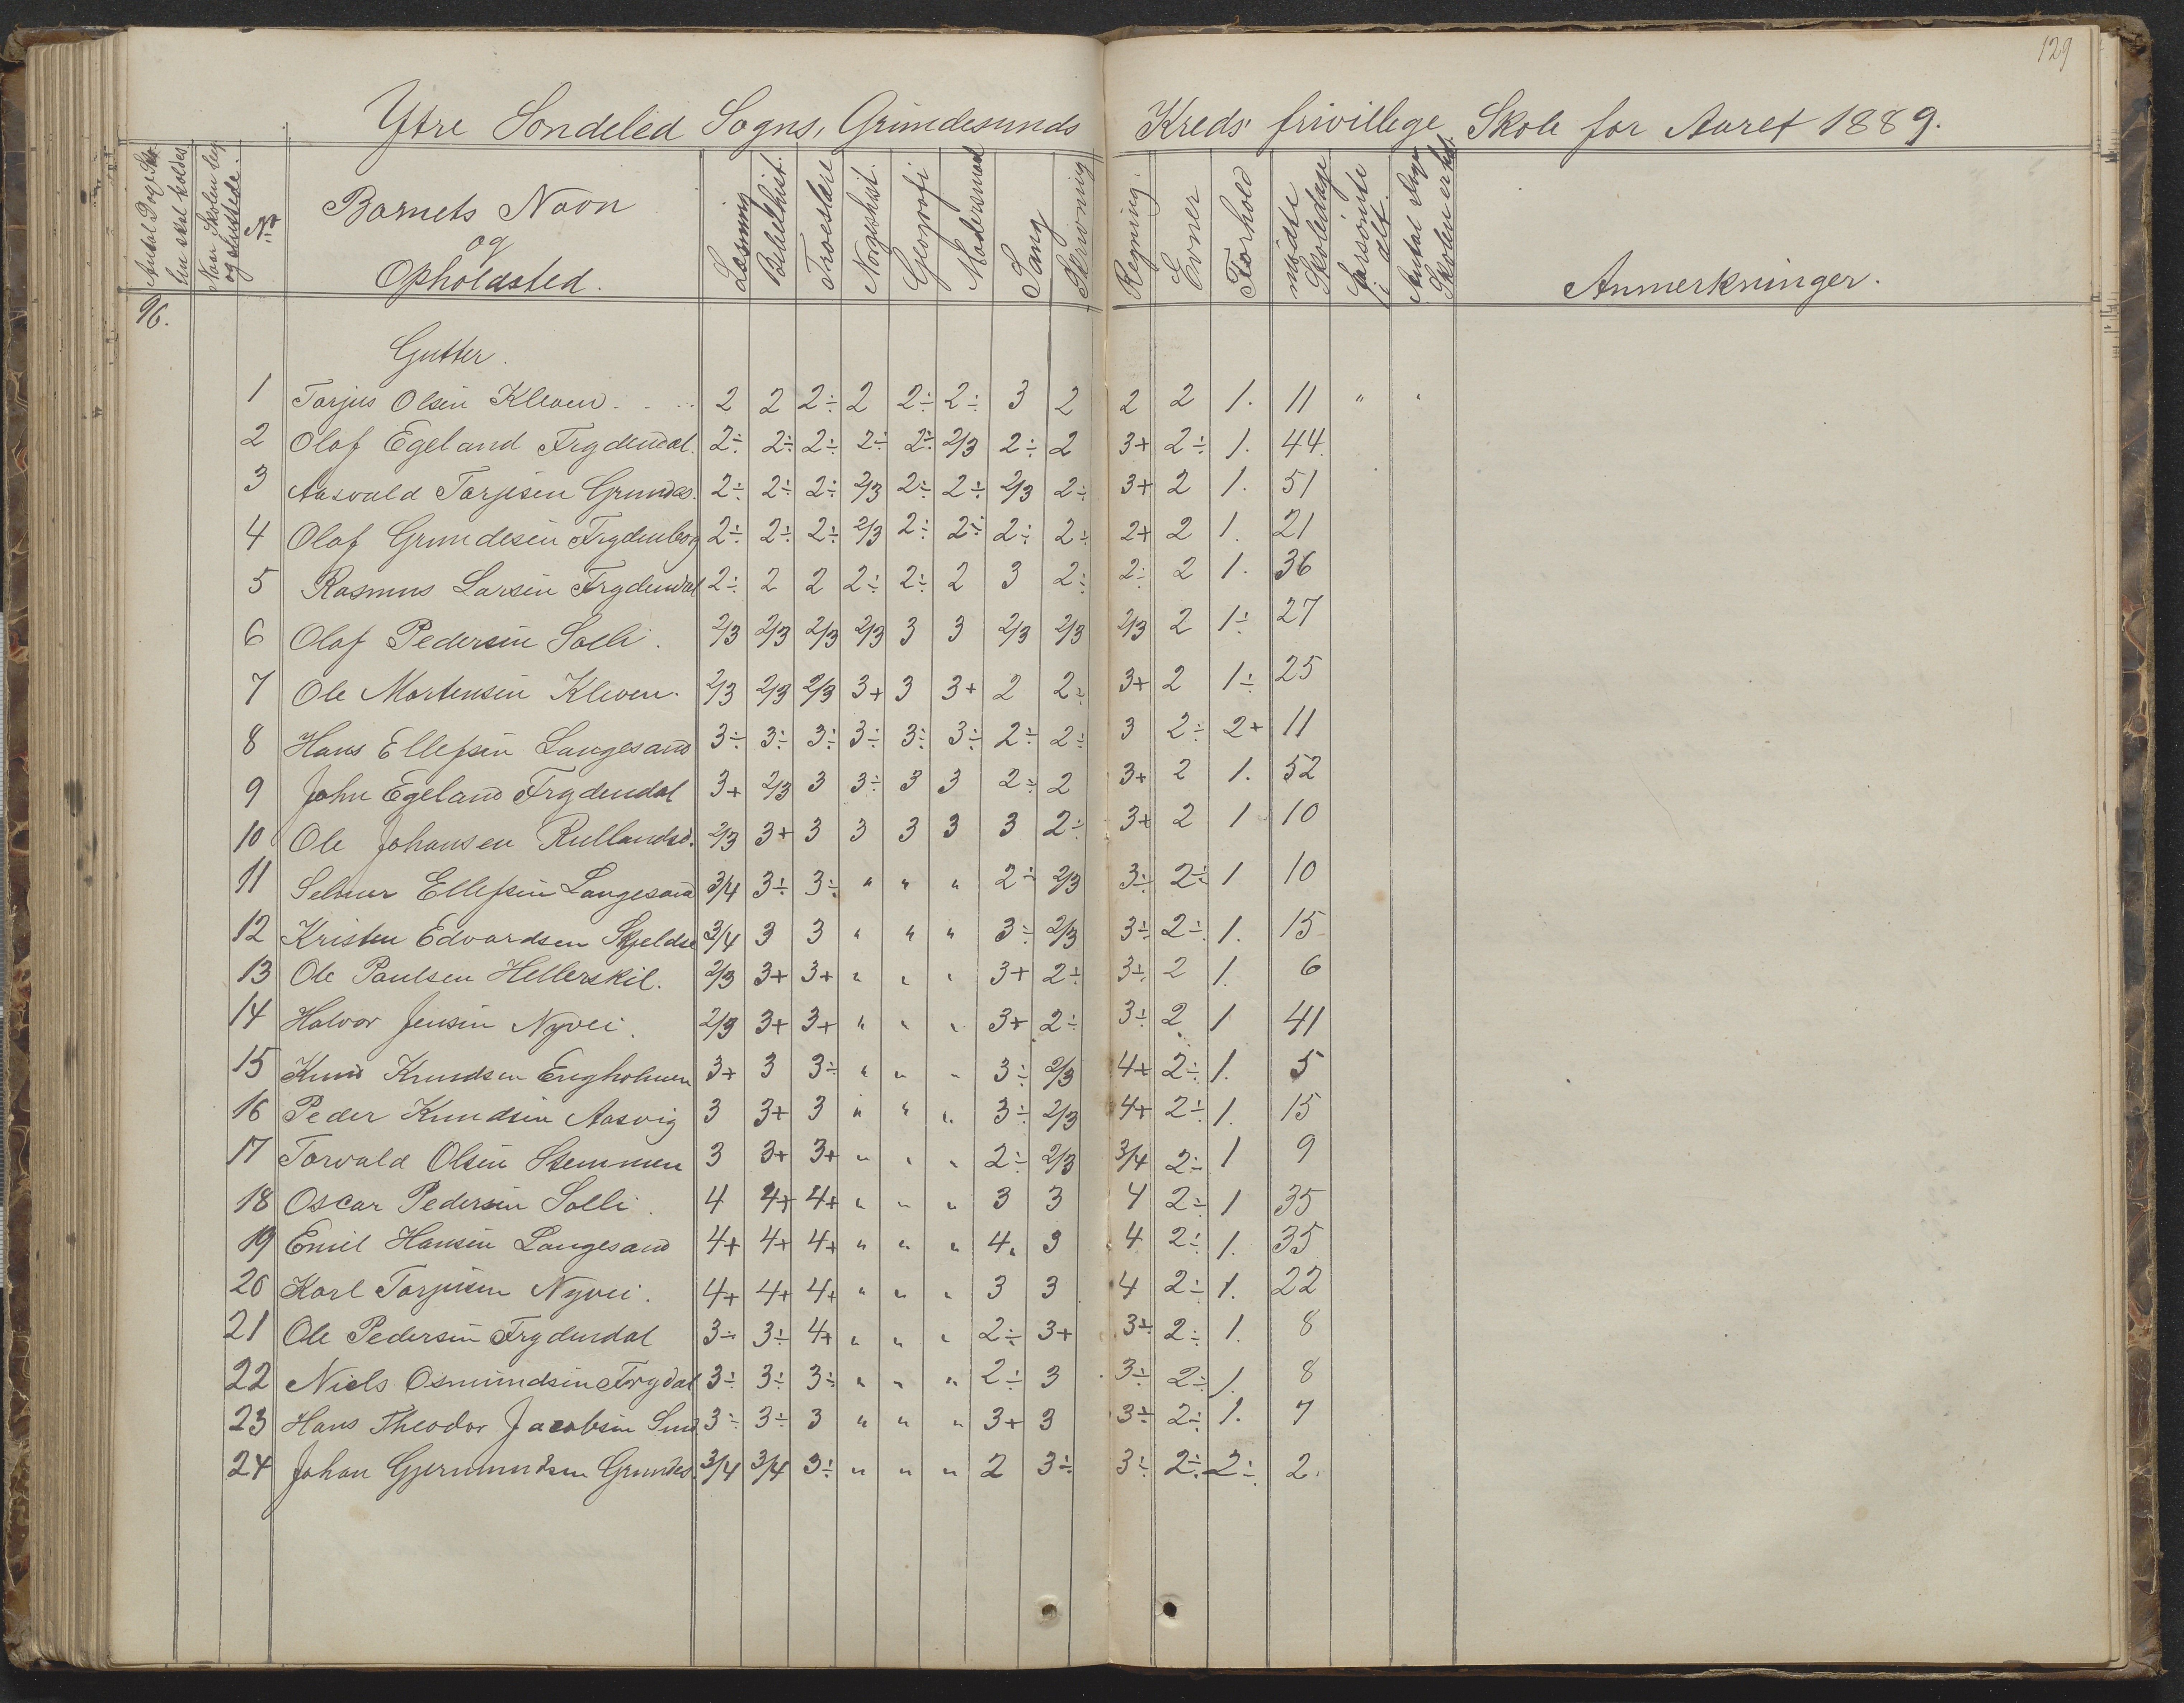 129
Ytre Sondeled Sogns, Grimdesunds Kreds' frivillege Skole for Aaret 1889.
Antal Dage Sko- len skal holdes
Naar Skolen beg. og sluttede.
No
Barnets Navn og Opholdssted.
Læsning
Bibelhist.
Troeslære
Norgeshist.
Geografi
Modersmaal
Sang
Skrivning
Regning.
Evner
Forhold
mødte Skoledage
forsømte i alt.
Antal Dage Skolen er hol.
Anmerkninger.
96.
Gutter.
1 Torjus Olsen Kleven. 2 2 2÷ 2 2÷ 2÷ 3 2 2 2 1. 11 " "
2 Olaf Egeland Frydendal. 2÷ 2÷ 2÷ 2÷ 2÷ 2/3 2÷ 2 3+ 2÷ 1. 44.
3 Aasvald Tarjesen Grundes. 2÷ 2÷ 2÷ 2/3 2÷ 2÷ 2/3 2÷ 3+ 2 1. 51
4 Olaf Grundesen Frydenborg 2÷ 2÷ 2÷ 2/3 2÷ 2÷ 2÷ 2÷ 2+ 2 1. 21
5 Rasmus Larsen Frydendal 2÷ 2 2 2÷ 2÷ 2 3 2÷ 2÷ 2 1. 36
6 Olaf Pedersen Solli. 2/3 2/3 2/3 2/3 3 3 2/3 2/3 2/3 2 1÷ 27
7 Ole Mortensen Kleven. 2/3 2/3 2/3 3+ 3 3+ 2 2÷ 3+ 2 1÷ 25
8 Hans Ellefsen Langesand 3÷ 3÷ 3÷ 3÷ 3÷ 3÷ 2÷ 2÷ 3 2÷ 2+ 11
9 John Egeland Frydendal 3+ 2/3 3 3÷ 3 3 2÷ 2 3+ 2 1. 52
10 Ole Johansen Rullandsd. 2/3 3+ 3 3 3 3 3 2÷ 3+ 2 1 10
11 Selmer Ellefsen Langesand 3/4 3÷ 3÷ " " " 2÷ 2/3 3÷ 2÷ 1 10
12 Kristen Edvardsen Skjeldsø 3/4 3 3 " " " 3÷ 2/3 3÷ 2÷ 1. 15
13 Ole Paulsen Hellerskil. 2/3 3+ 3+ " " " 3+ 2÷ 3÷ 2 1. 6
14 Halvor Jensen Nyvei. 2/3 3+ 3+ " " " 3+ 2÷ 3÷ 2 1 41
15 Knud Knudsen Engholmen 3+ 3 3÷ " " " 3÷ 2/3 4+ 2÷ 1. 5
16 Peder Knudsen Aasvig 3 3+ 3 " " " 3÷ 2/3 4+ 2÷ 1. 15
17 Torvald Olsen Stemmen 3 3+ 3+ " " " 2÷ 2/3 3/4 2÷ 1 9
18 Oscar Pedersen Solli. 4 4+ 4+ " " " 3 3 4 2÷ 1 35
19 Emil Hansen Langesand 4+ 4+ 4+ " " " 4. 3 4 2÷ 1. 35
20 Karl Torjusen Nyvei. 4+ 4+ 4+ " " " 3 3 4 2÷ 1. 22
21 Ole Pedersen Frydendal 3÷ 3÷ 4+ " " " 2÷ 3+ 3÷ 2÷ 1. 8
22 Niels Osmundsen Frydal 3÷ 3÷ 3÷ " " " 2÷ 3 3÷ 2÷ 1. 8
23 Hans Theodor Jacobsen Sund 3÷ 3÷ 3 " " " 3+ 3 3÷ 2÷ 1. 7
24 Johan Gjermundsen Grundes. 3/4 3/4 3÷ " " " 2 3÷ 3÷ 2÷ 2÷ 2.